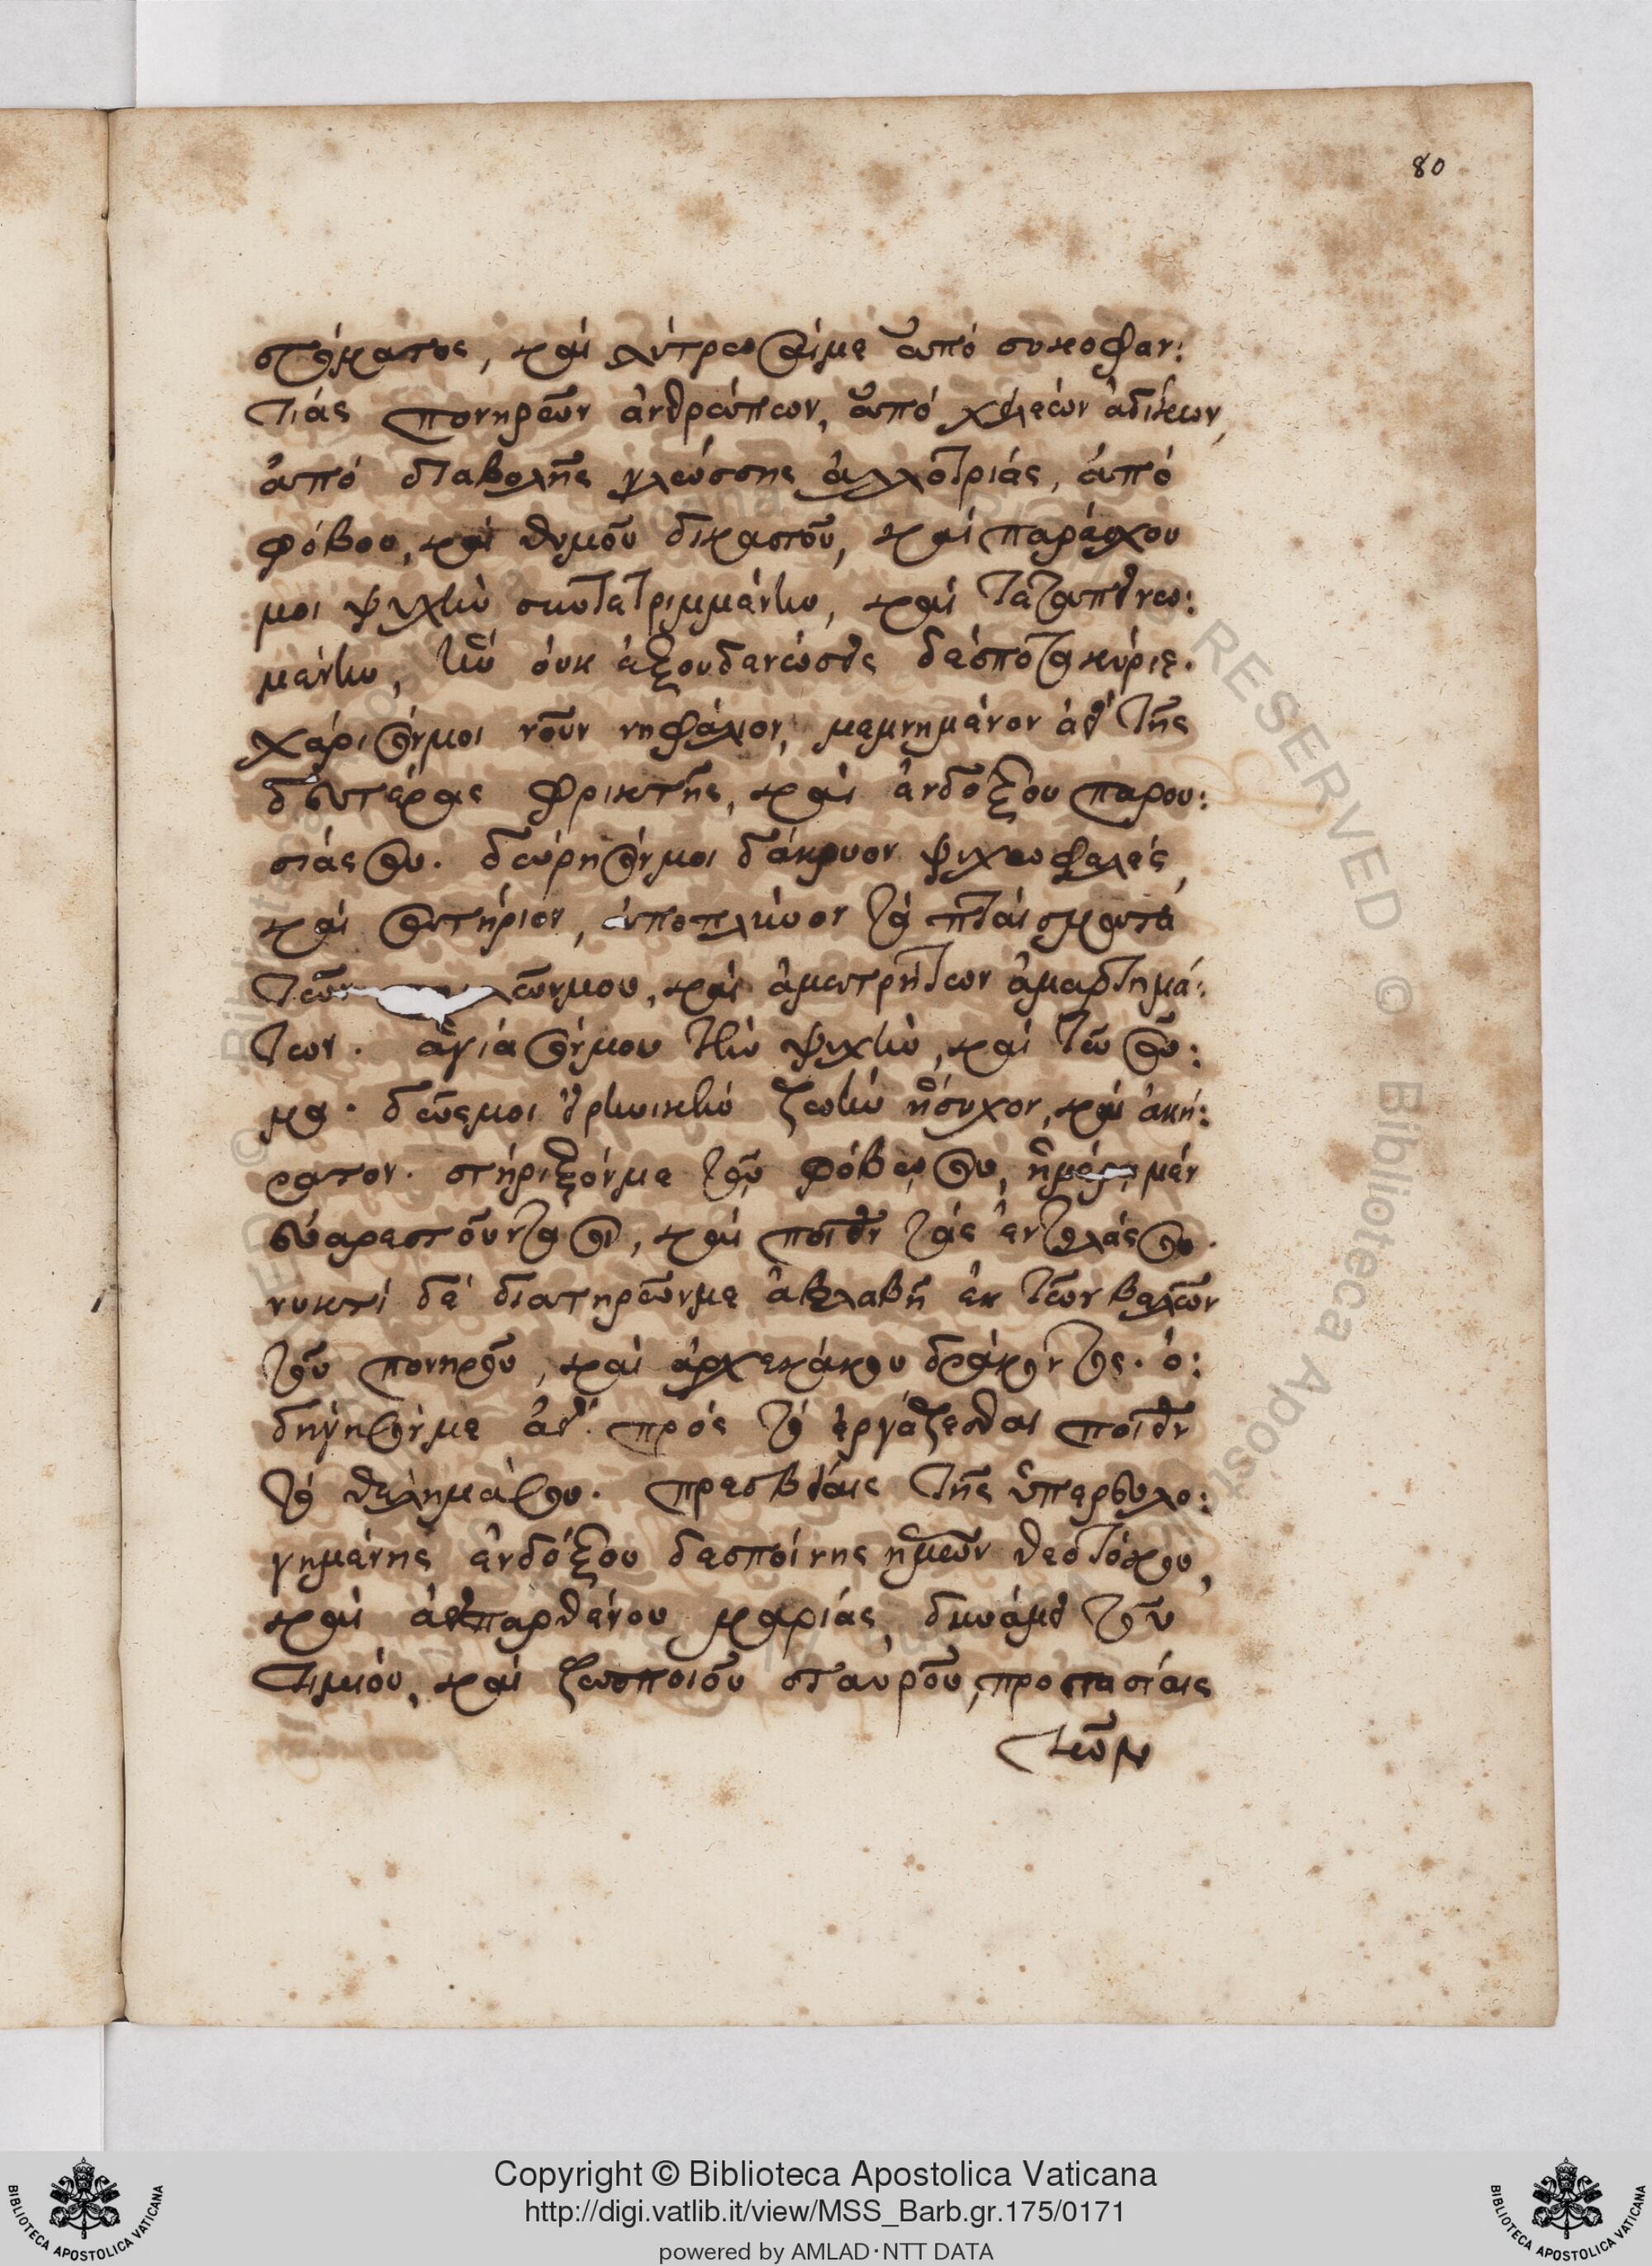 80
στόματος, καὶ λύτρωσαίμε ἀπό συκοφαν:
τιάς πονηρῶν ἀνθρώπων, ἀπό χειλέων ἀδίκων,
ἀπό διαβολῆς γλώσσης ἀλλοτριάς, ἀπό
φόβου, καὶ θυμοῦ δικαστοῦ, καὶ παράσχου
μοι ψυχὴν συντετριμμένην, καὶ τεταπεινω:
μένην, ἣν οὐκ ἐξουδενώσεις δέσποτα κύριε.
χάρισόν μοι νοῦν νηφάλιον, μεμνημένον ἀεὶ τῆς
δευτέρας φρικτῆς, καὶ ἐνδόξου παρου:
σιάς σου. δώρησόν μοι δάκρυον ψυχωφελές,
καὶ σωτήριον, ἀποπλύνον τὰ πταίσματα
τῶν μου, καὶ ἀμετρήτων ἁμαρτημά:
των. ἁγίασόν μου τὴν ψυχὴν, καὶ τὸ σῶ:
μα. δός μοι εἰρηνικὴν ζωὴν ἥσυχον, καὶ ἀκή:
ρατον. στήριξόν με τοῦ φόβω σου, ἡμέρα μέν
εὐαρεστοῦντα σοι, καὶ ποιεῖν τὰς ἐντολάς σου.
νυκτὶ δὲ διατηρῶν με ἀβλαβῆ ἐκ τῶν βελῶν
τοῦ πονηροῦ, καὶ ἀρχεκάκου δράκοντος. ὁ:
δήγησόν με ἀεὶ πρὸς τὸ ἐργάζεσθαι ποιεῖν
τὸ θέλημά σου. πρεσβείαις τῆς ὑπερευλο:
γημένης ἐνδόξου δεσποίνης ἡμῶν θεοτόκου,
καὶ ἀειπαρθένου μαρίας, δυνάμει τοῦ
τιμίου, καὶ ζωοποιοῦ σταυροῦ, προστασίαις
τῶν
Copyright © Biblioteca Apostolica Vaticana
http://digi.vatlib.it/view/MSS_Barb.gr.175/0171
powered by AMLAD·NTT DATA
BIBLIOTECA APOSTOLICA VATICANA
BIBLIOTECA APOSTOLICA VATICANA